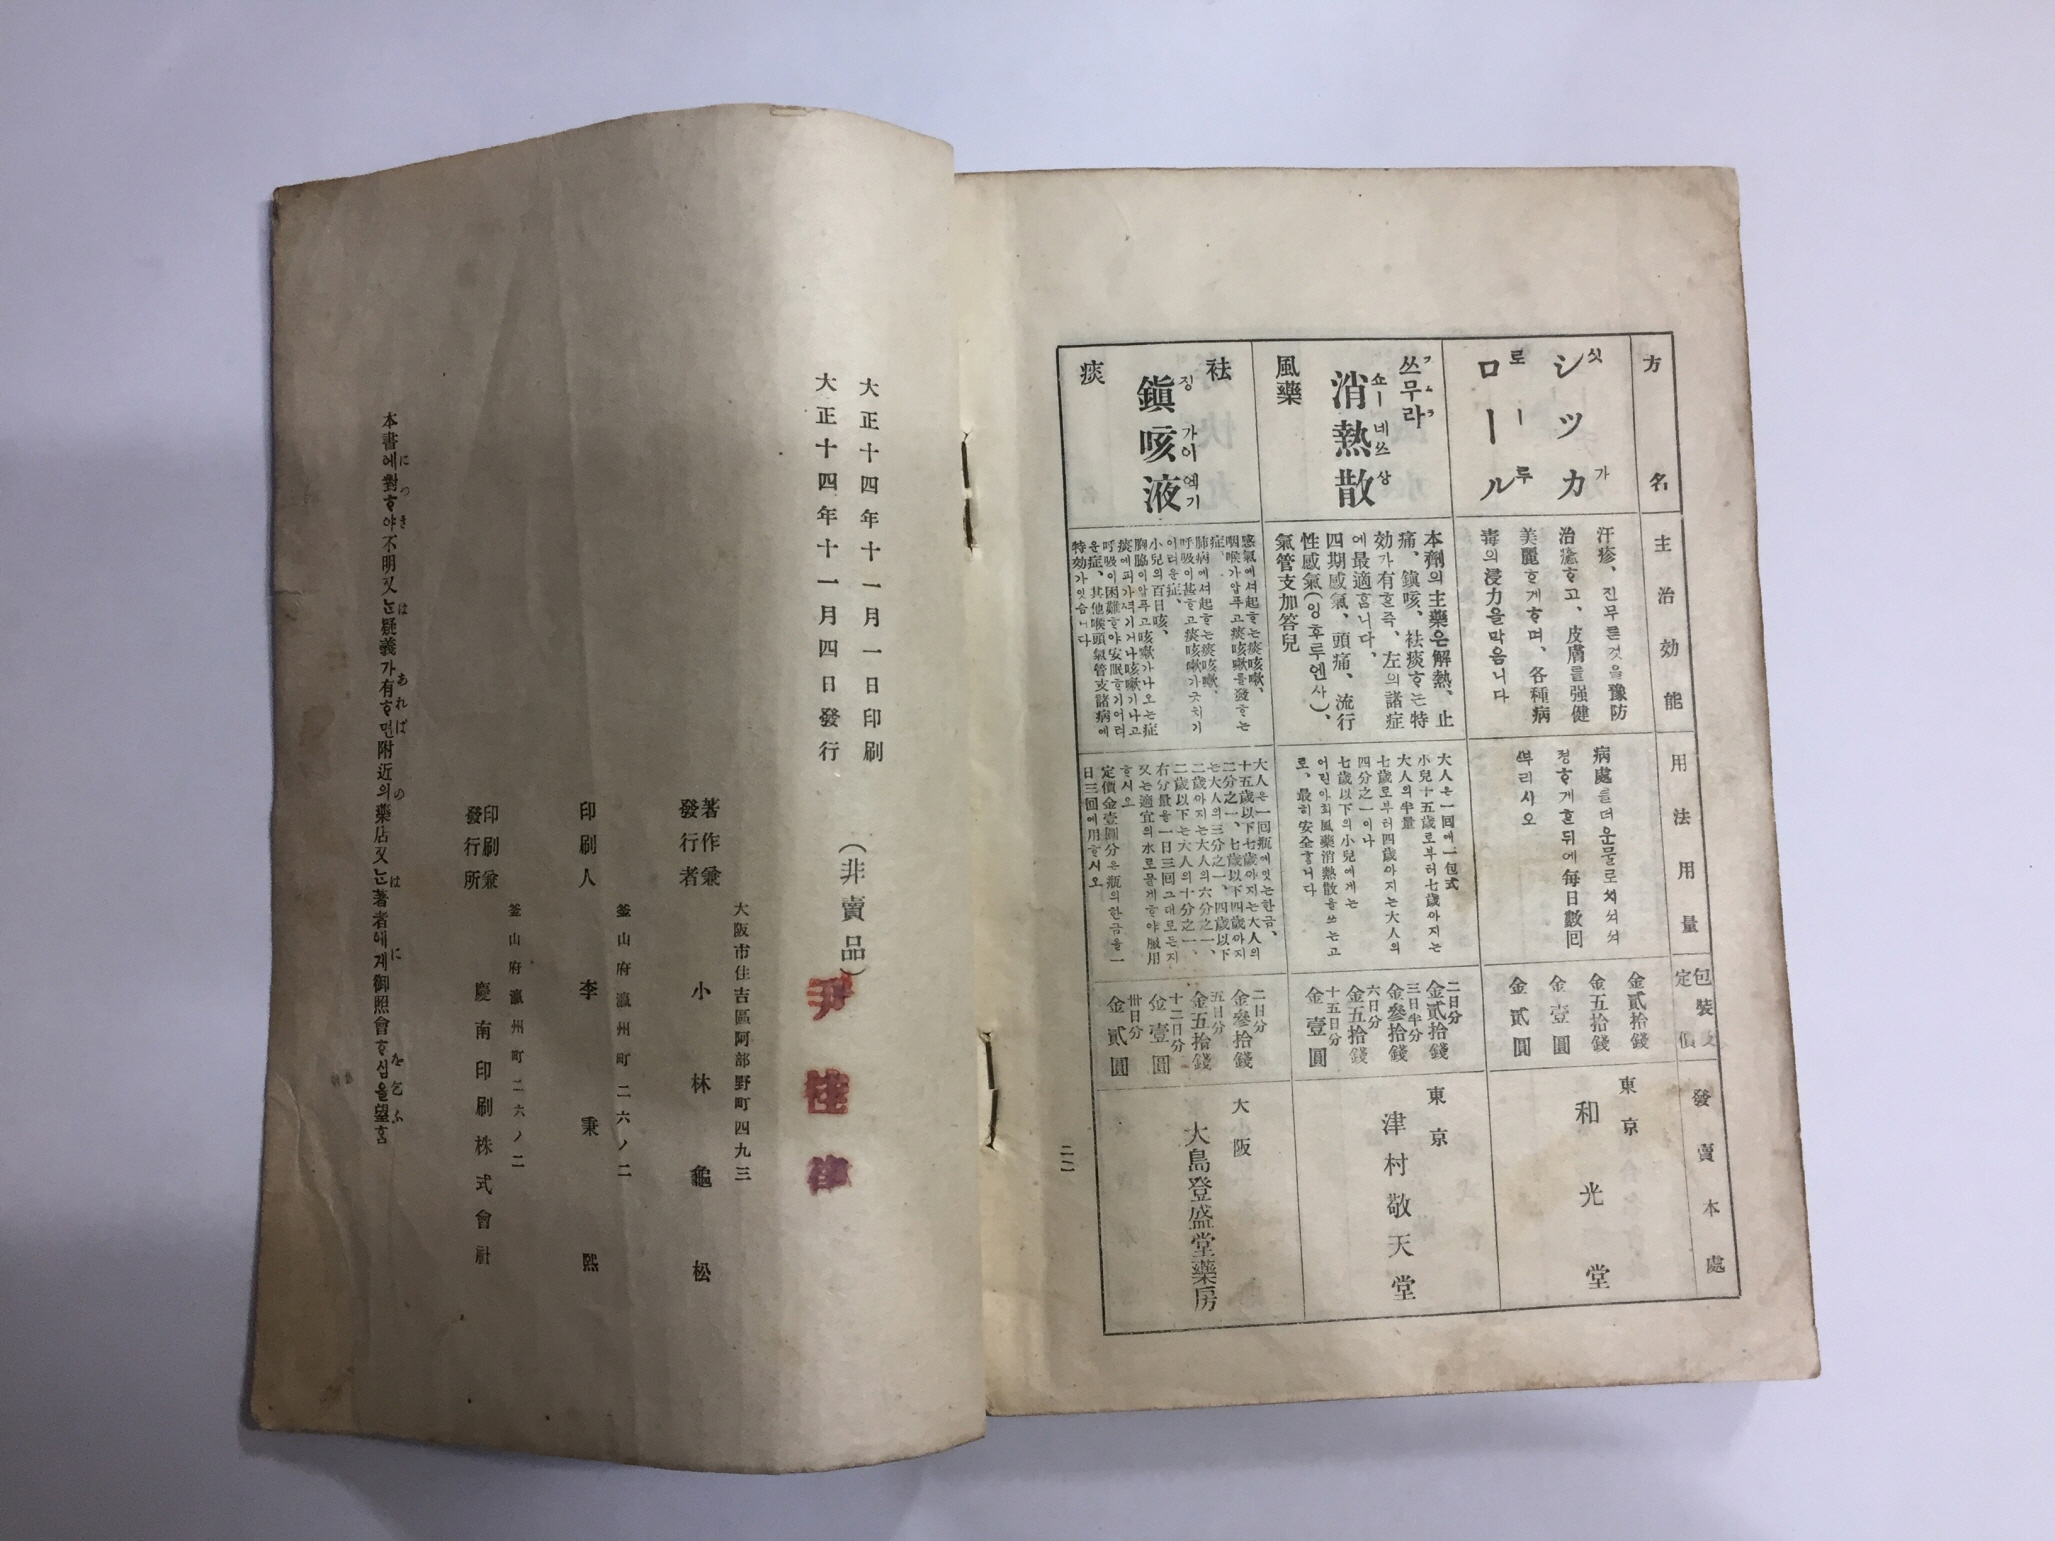 方名
主治効能
用法用量
包裝及定價
發賣本處
シツカロール
싯가로ー루
汗疹、진무른것을豫防
治癒ᄒᆞ고、皮膚를强健
美麗ᄒᆞ게ᄒᆞ며、各種病
毒의浸力을막음니다
病處를더운물로써서
정ᄒᆞ게ᄒᆞᆫ뒤에每日數回
ᄲᅮ리시오
金貳拾錢
金五拾錢
金壹圓
金貳圓
東京
和光堂
쓰무라
ツムラ
消熱散
쇼ー네쓰상
風藥
本劑의主藥은解熱、止
痛、鎭咳、祛痰ᄒᆞ는特
効가有ᄒᆞᆫ즉、左의諸症
에最適ᄒᆞᆷ니다、
四期感氣、頭痛、流行
性感氣(잉후루엔사)、
氣管支加答兒
大人은一回에一包式
小兒十五歲로부터七歲ᄭᅡ지는
大人의半量
七歲로부터四歲ᄭᅡ지는大人의
四分之一이나
七歲以下의小兒에게는
어린아희風藥消熱散을쓰는고
로、最히安全ᄒᆞᆷ니다
二日分
金貳拾錢
三日半分
金參拾錢
六日分
金五拾錢
十五日分
金壹圓
東京
津村敬天堂
祛痰
鎭咳液
징가이엑기
感氣에셔起ᄒᆞ는痰咳嗽、
咽喉가압푸고痰咳嗽를發ᄒᆞ는
症、
肺病에셔起ᄒᆞ는痰咳嗽、
呼吸이甚ᄒᆞ고痰咳嗽가긋치기
어려운症、
小兒의百日咳、
胸脇이압푸고咳嗽가나오는症
痰에피가셕기거나咳嗽가나고
呼吸이困難ᄒᆞ야安眠ᄒᆞ기어려
운症、其他喉頭氣管支諸病에
特効가잇슴니다
大人은一回瓶에잇는한금、
十五歲以下七歲ᄭᅡ지는大人의
二分之一、七歲以下四歲ᄭᅡ지
는大人의三分之一、四歲以下
二歲ᄭᅡ지는大人의六分之一、
二歲以下는大人의十分之一、
右分量을一日三回그대로든지
又는適宜의水로묽게ᄒᆞ야服用
ᄒᆞ시오
定價金壹圓分은瓶의한금을一
日三回에用ᄒᆞ시오
二日分
金參拾錢
五日分
金五拾錢
十二日分
金壹圓
卅日分
金貳圓
大阪
大島登盛堂藥房
二一
大正十四年十一月一日印刷
大正十四年十一月四日發行
(非賣品)
尹
大阪市住吉區阿部野町四九三
著作兼發行者 小林龜松
釜山府瀛州町二六ノ二
印刷人 李秉熙
釜山府瀛州町二六ノ二
印刷兼發行所 慶南印刷株式會社
本書에對ᄒᆞ야不明又는疑義가有ᄒᆞ면附近의藥店又는著者에게御照會ᄒᆞ심을望ᄒᆞᆷ
につき は あれば の は に を乞ふ